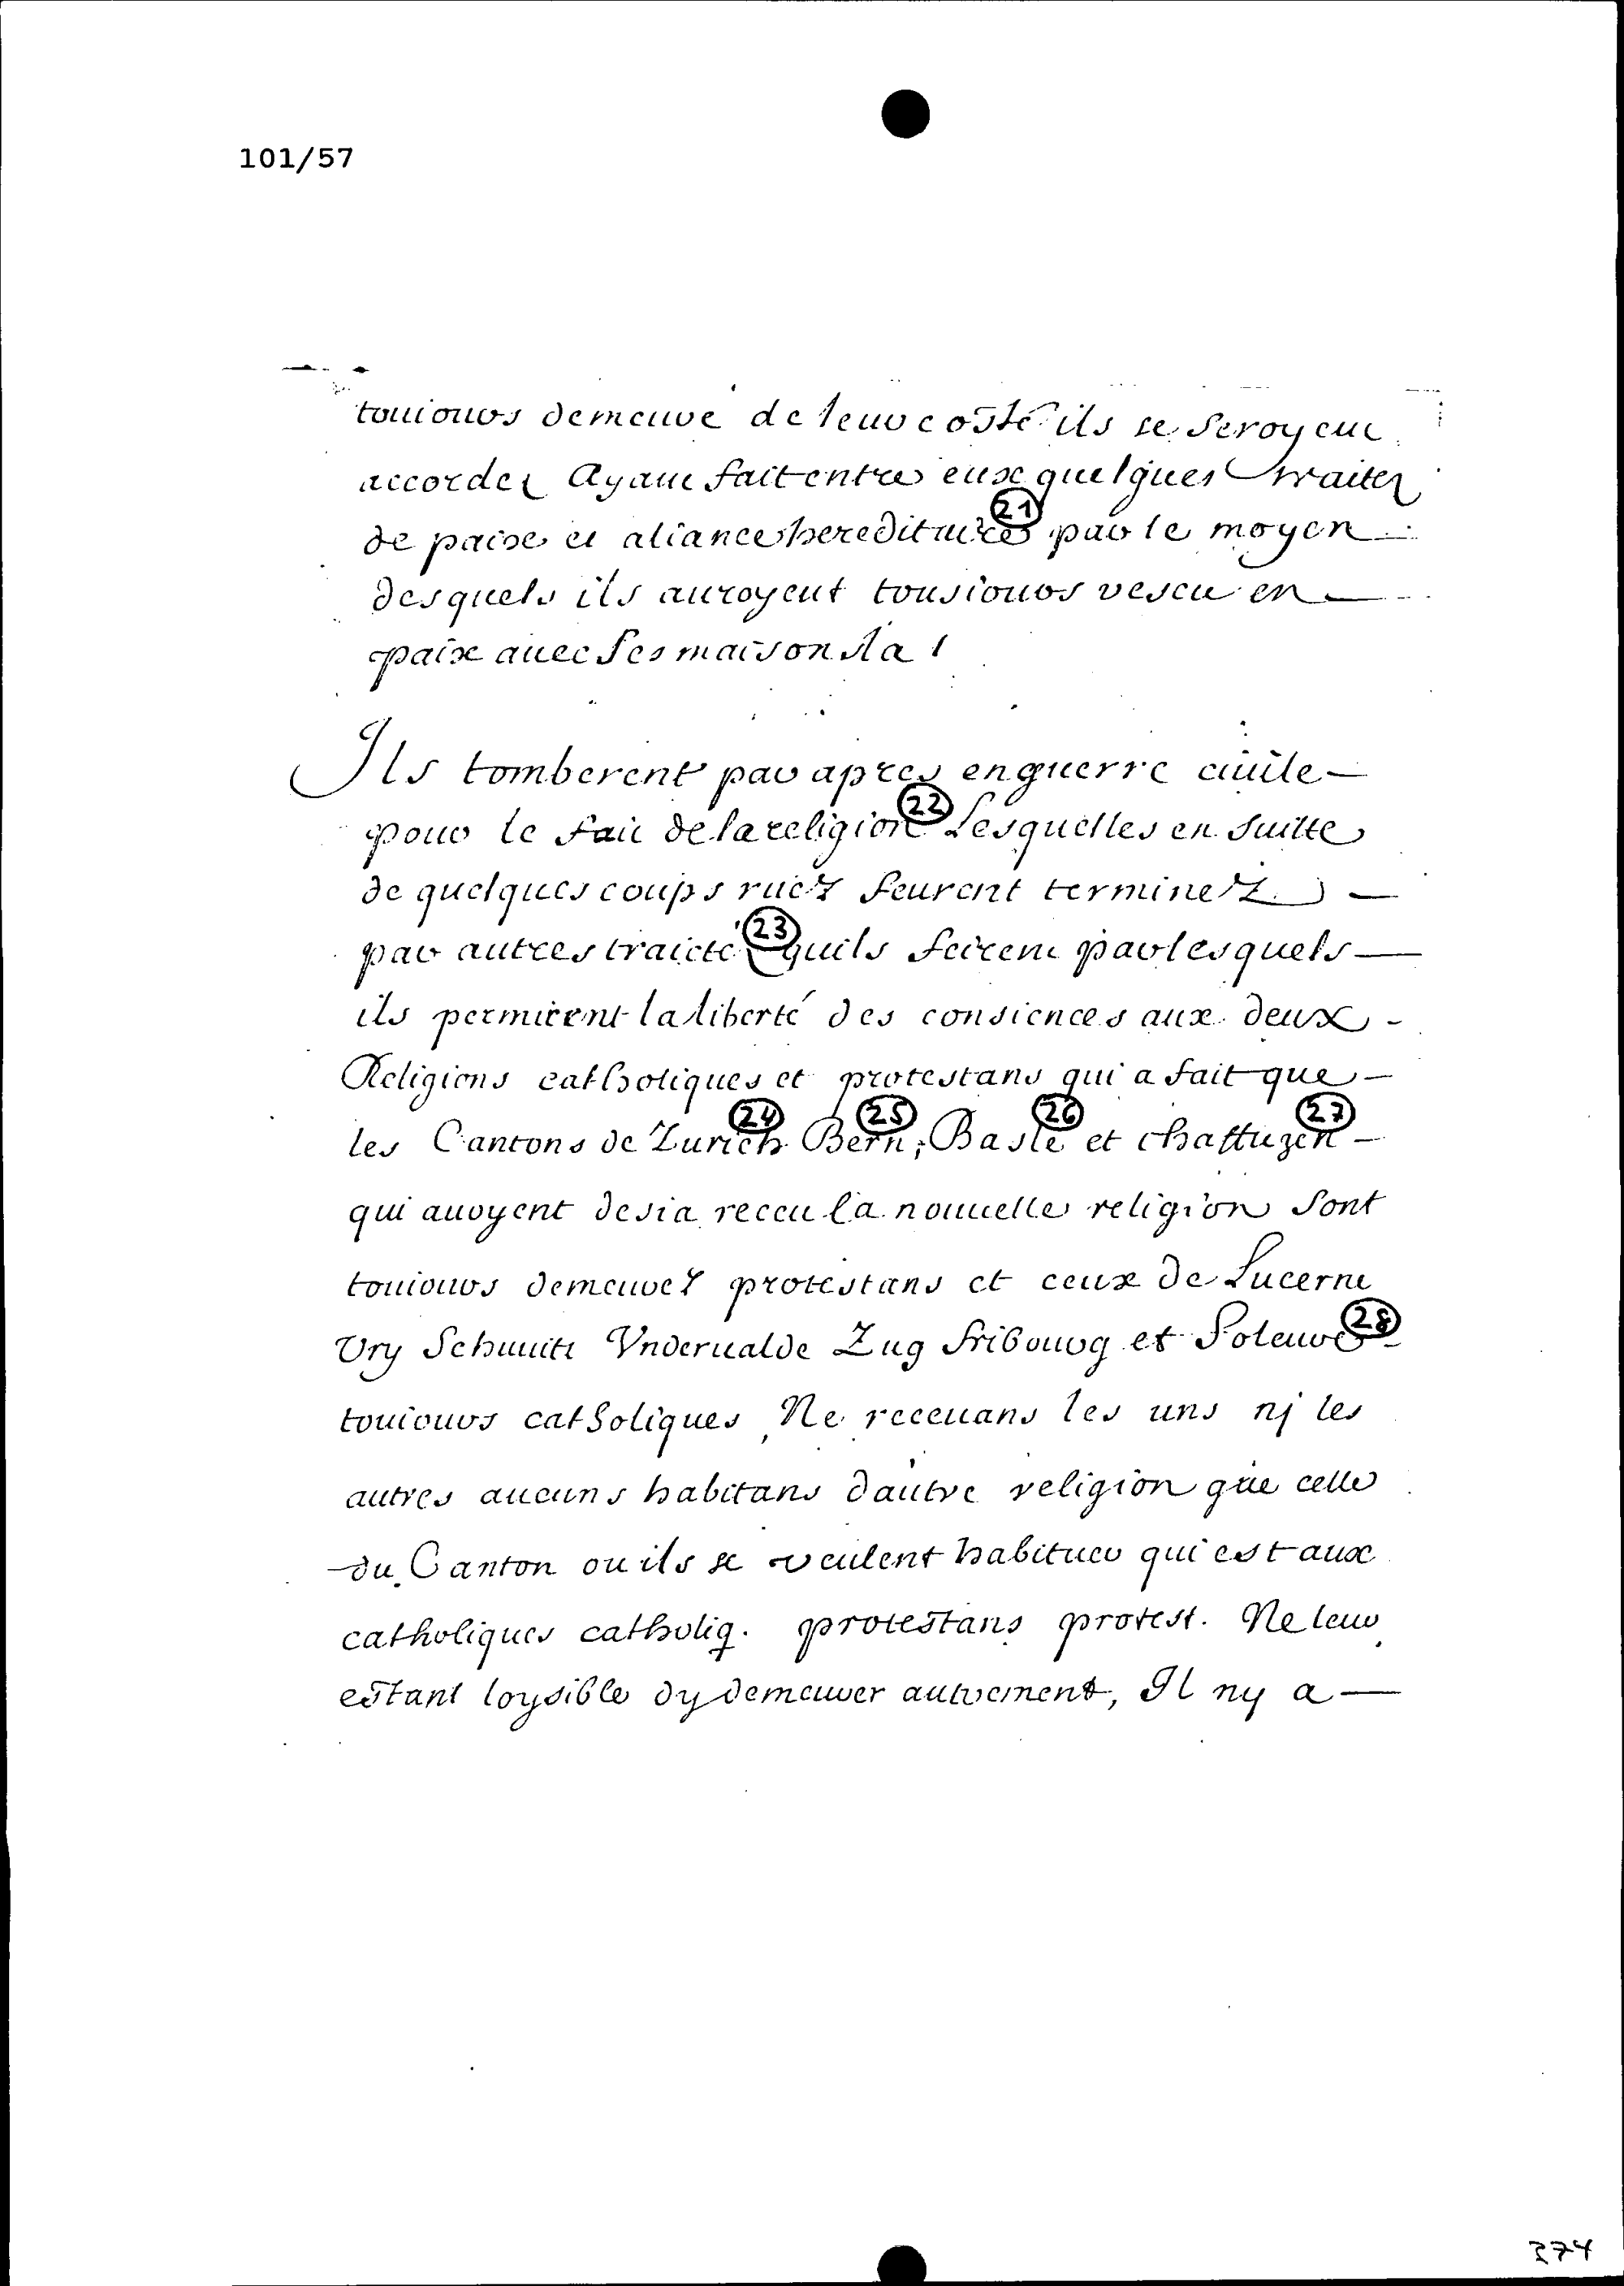 101/57
touiours demeuré de leur costé ils se seroyent
accordez Ayant fait entre eux quelques traitez
de paix et aliance hereditaire (21) par le moyen
desquels ils auroyent tousiours vescu en
paix auec ses maison là
Ils tomberent par apres en guerre ciuile
pour le fait de la religion (22) Lesquelles en suitte
de quelques coups ruez feurent terminez
par autres traictez (23) quils feirent par lesquels
ils permirent la liberté des consiences aux deux
Religions catholiques et protestans qui a fait que
les Cantons de Zurich (24) Bern (25), Basle (26) et chaffuzen (27)
qui auoyent desia receu la nouuelle religion sont
touiours demeurez protestans et ceux de Lucerne
Vry Schuuitz Vnderualde Zug fribourg et Soleure (28)
touiours catholiques, Ne receuans les uns nj les
autres aucuns habitans dautre religion que celle
du Canton ou ils se veulent habituer qui est aux
catholiques catholiq. protestans protest. Ne leur
estant loysible dy demeurer autrement, Il ny a
374